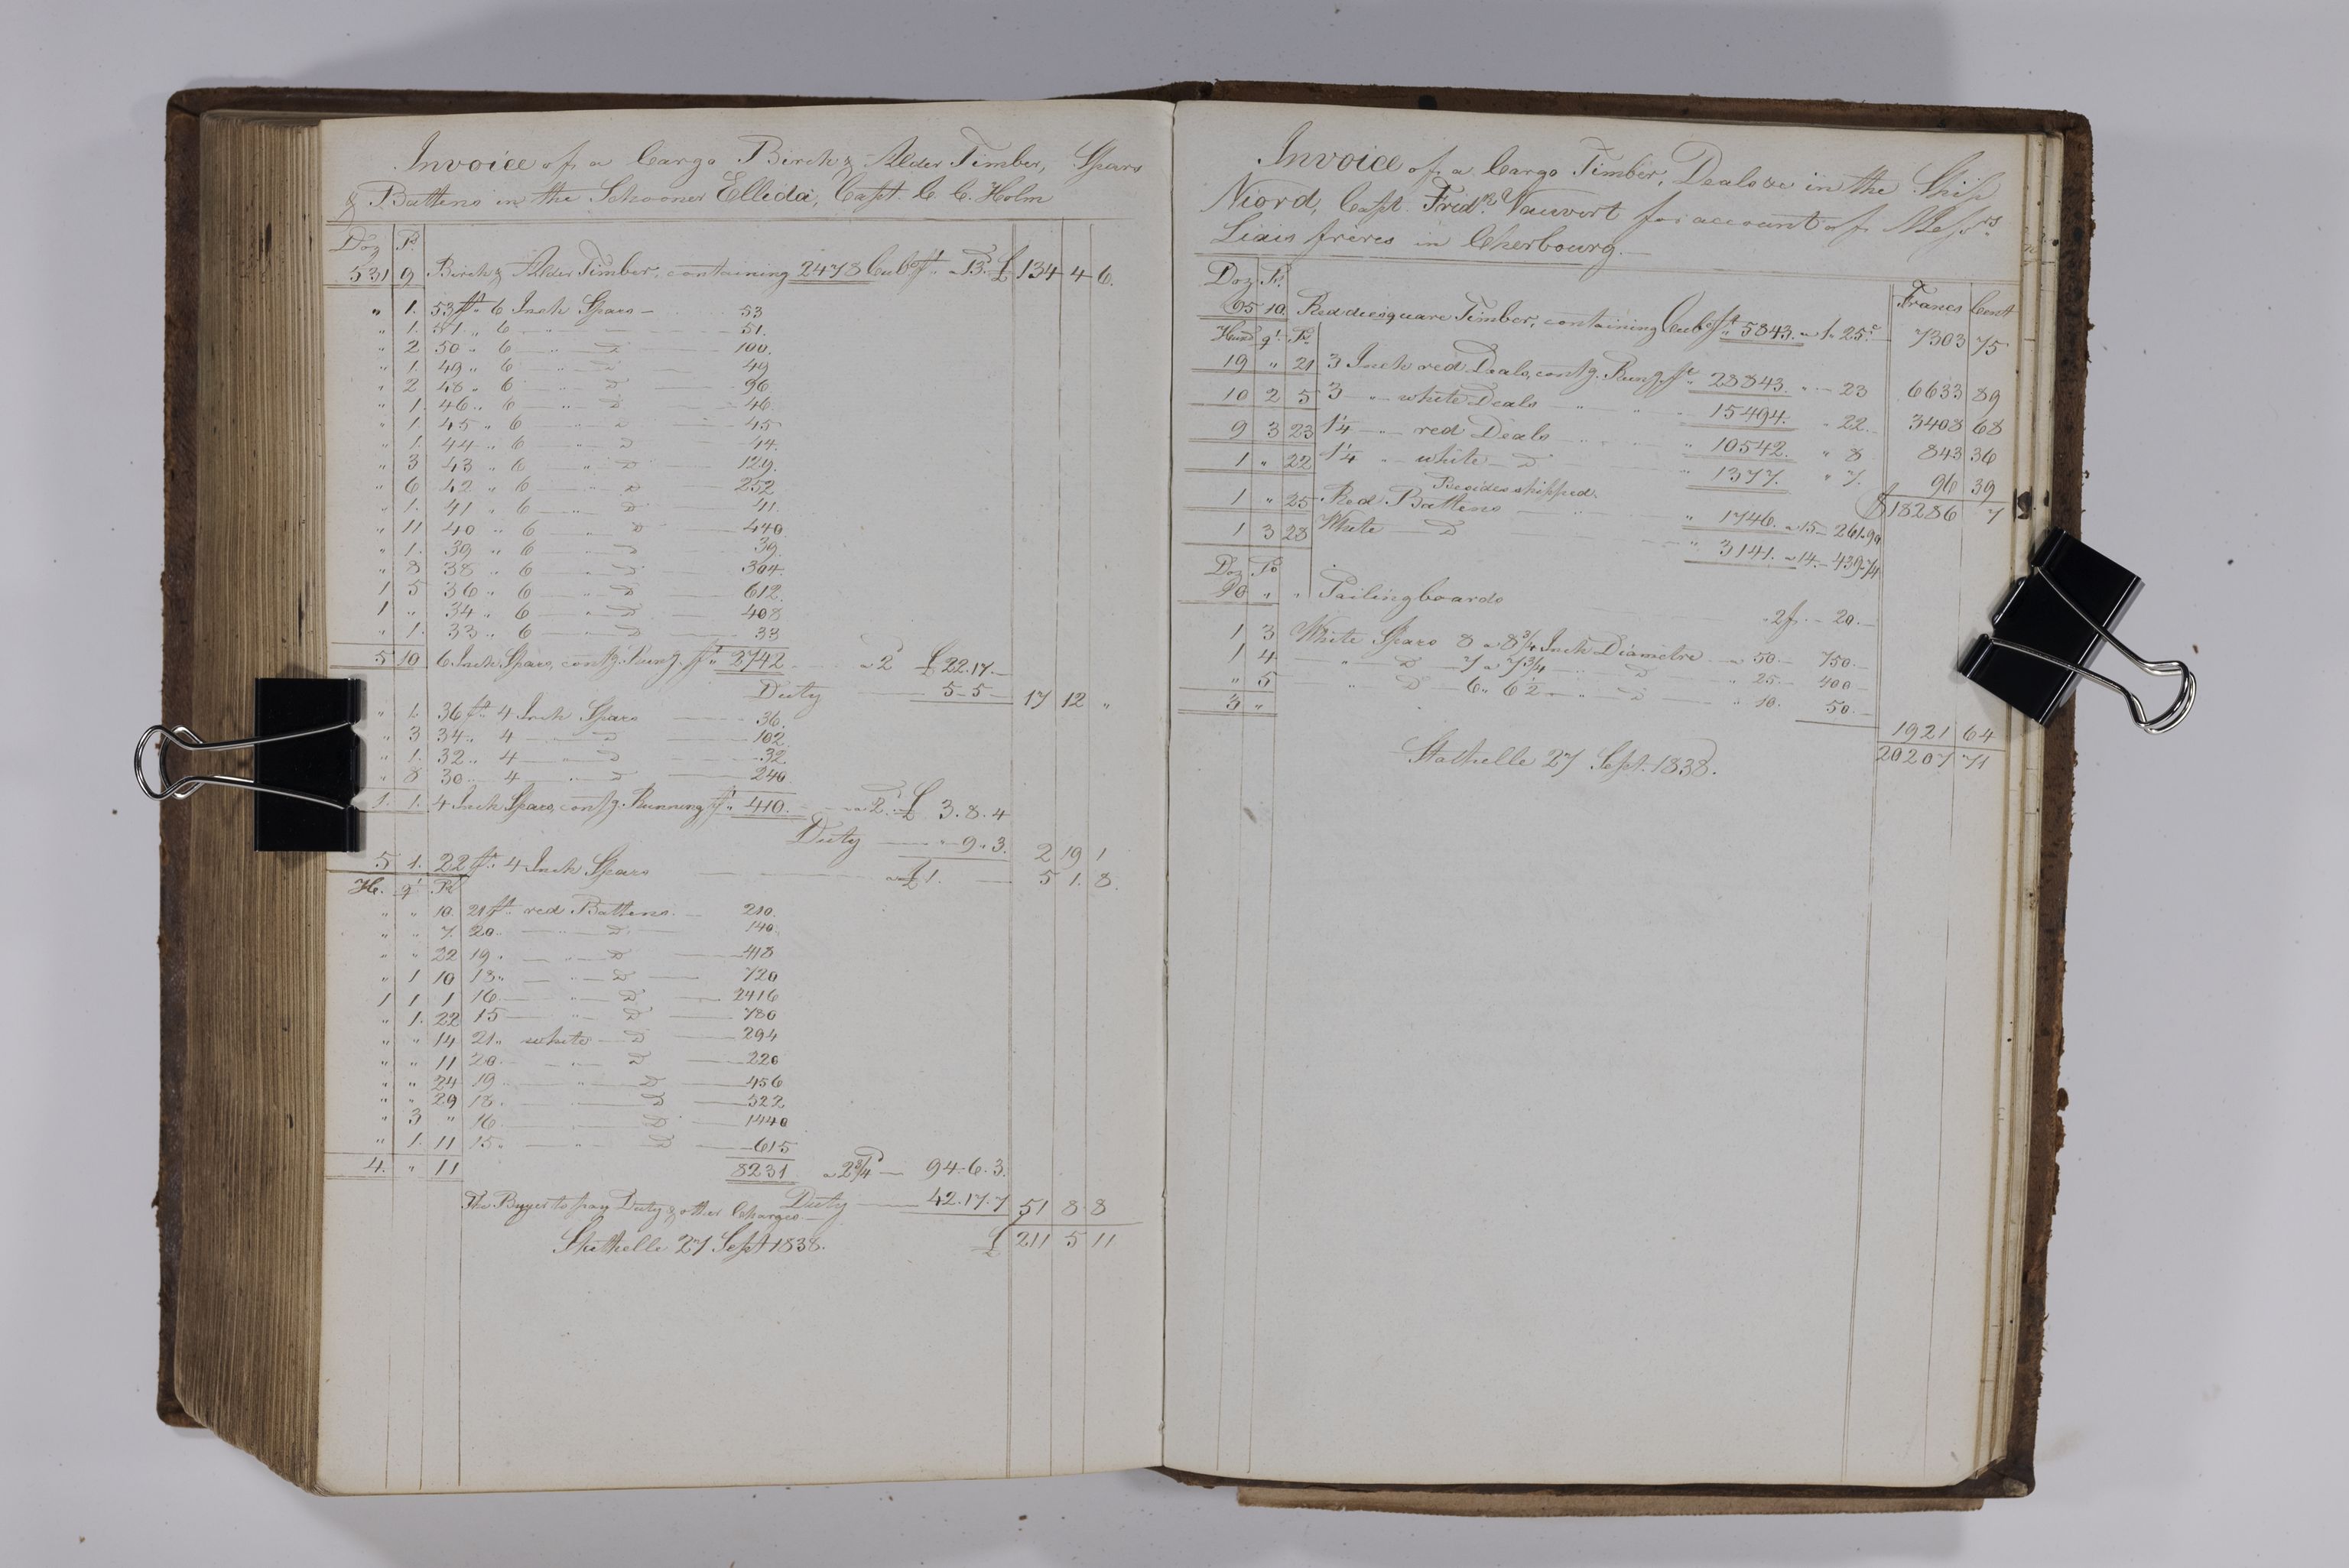 Invoice of a Cargo Birch & Alder Timber, Spars
& Battens in the Schooner Ellida, Capt. C. C. Holm
Doz Ps
531 9 Birch & Alder Timber, containing 2478 Cub ft. a 13d £ 134 4 6.
" 1. 53 ft. 6 Inch Spars - 53
" 1. 51 " 6 — " — 51.
" 2 50 " 6 — " D — 100.
" 1. 49 " 6 — " D — 49
" 2 48 " 6 — " D — 96
" 1. 46 " 6 — " D — 46
" 1. 45 " 6 — " D — 45
" 1. 44 " 6 — " D — 44.
" 3 43 " 6 — " D — 129.
" 6 42 " 6 — " D — 252
" 1. 41 " 6 — " D — 41.
" 11 40 " 6 — " D — 440
" 1. 39 " 6 — " D — 39.
" 8 38 " 6 — " D — 304
1 5 36 " 6 — " D — 612.
1 " 34 " 6 — " D — 408
" 1. 33 " 6 — " D — 33
5 10 6 Inch Spars, contg. Rung. ft. 2742 — a 2d £ 22.17.—
Duty — 5-5- 17 12 "
" 1. 36 ft. 4 Inch Spars — 36.
" 3 34 " 4 — " D — 102
" 1. 32 " 4 — " D — 32
" 8 30 " 4 — " D — 240
1. 1. 4 Inch Spars, contg. Running ft. 410. — a 2d. £ 3.8.4
Duty — " 9 " 3. 2 19 1
5 1. 22 ft. 4 Inch Spars — a £1. — 5 1. 8.
H. qr. Ps
" " 10. 21 ft. red Battens. — 210.
" " 7. 20 " — " D — 140.
" " 22 19 " — " D — 418
" 1 10 18 " — " D — 720
1 1 1 16 — " D — 2416
" 1. 22 15 — " D — 780
" " 14 21 " white — D — 294
" " 11 20 " — " D — 220
" " 24 19 " — " D — 456
" " 29 18 " — " D — 522
" 3 " 16 — " D — 1440
" 1. 11 15 " — " D — 615
4. " 11 8231 a 2 3/4d — 94-6.3.
The Buyer to pay Duty & other Charges — Duty — 42.17.7 51 8 8
Stathelle 27 Sept 1838. £ 211 5 11
Invoice of a Cargo Timber, Deals &c in the Ship
Niord, Capt. Fridr. Vauvert for account of Messrs
Liais frères in Cherbourg.—
Doz. Ps. Francs Cent
95 10. Red diesquare Timber, containing Cub ft. 5843. a 1. 25c — 7303 75
Hund qr. Ps
19 " 21 3 Inch red Deals, contg. Rung. ft. 28843. " — 23 6633 89
10 2 5 3 — " — white Deals — " — " 15494. " 22. 3408 68
9 3 23 1¼ — " — red Deals — " 10542. " 8 843 36
1 " 22 1¼ " — white — D — " 1377. " 7. 96 39
Besides shipped. f 18286 7
1 " 25 Red Battens — " 1746. a 15 — 261.90
1 3 28 White — D — " 3141. a 14. — 439.74
Doz Ps
90 " " Pailingboards — " 2f. — 20.—
1 3 White Spars 8 a 8 3/4 Inch Diametre — a 50 — 750.—
1 4 — " — D — 7 a 7 3/4 — " — D — " 25 — 400 —
" 5 — " — D — 6 " 6½ — " — D — " 10. 50.—
3 " 1921 64
20207 71
Stathelle 27 Sept. 1838.